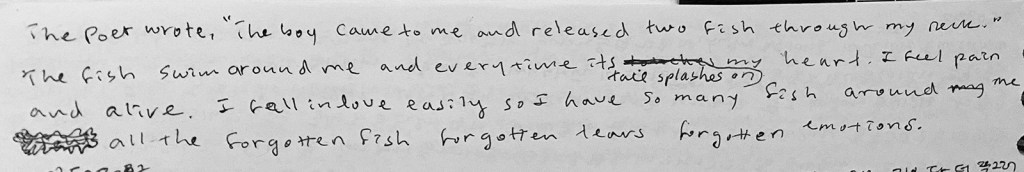 The Poet wrote, "The boy came to me and released two fish through my neck."
The fish swim around me and everytime its tail splashes on my heart. I feel pain
and alive. I fall in love easily so I have so many fish around me
all the forgotten fish forgotten tears forgotten emotions.